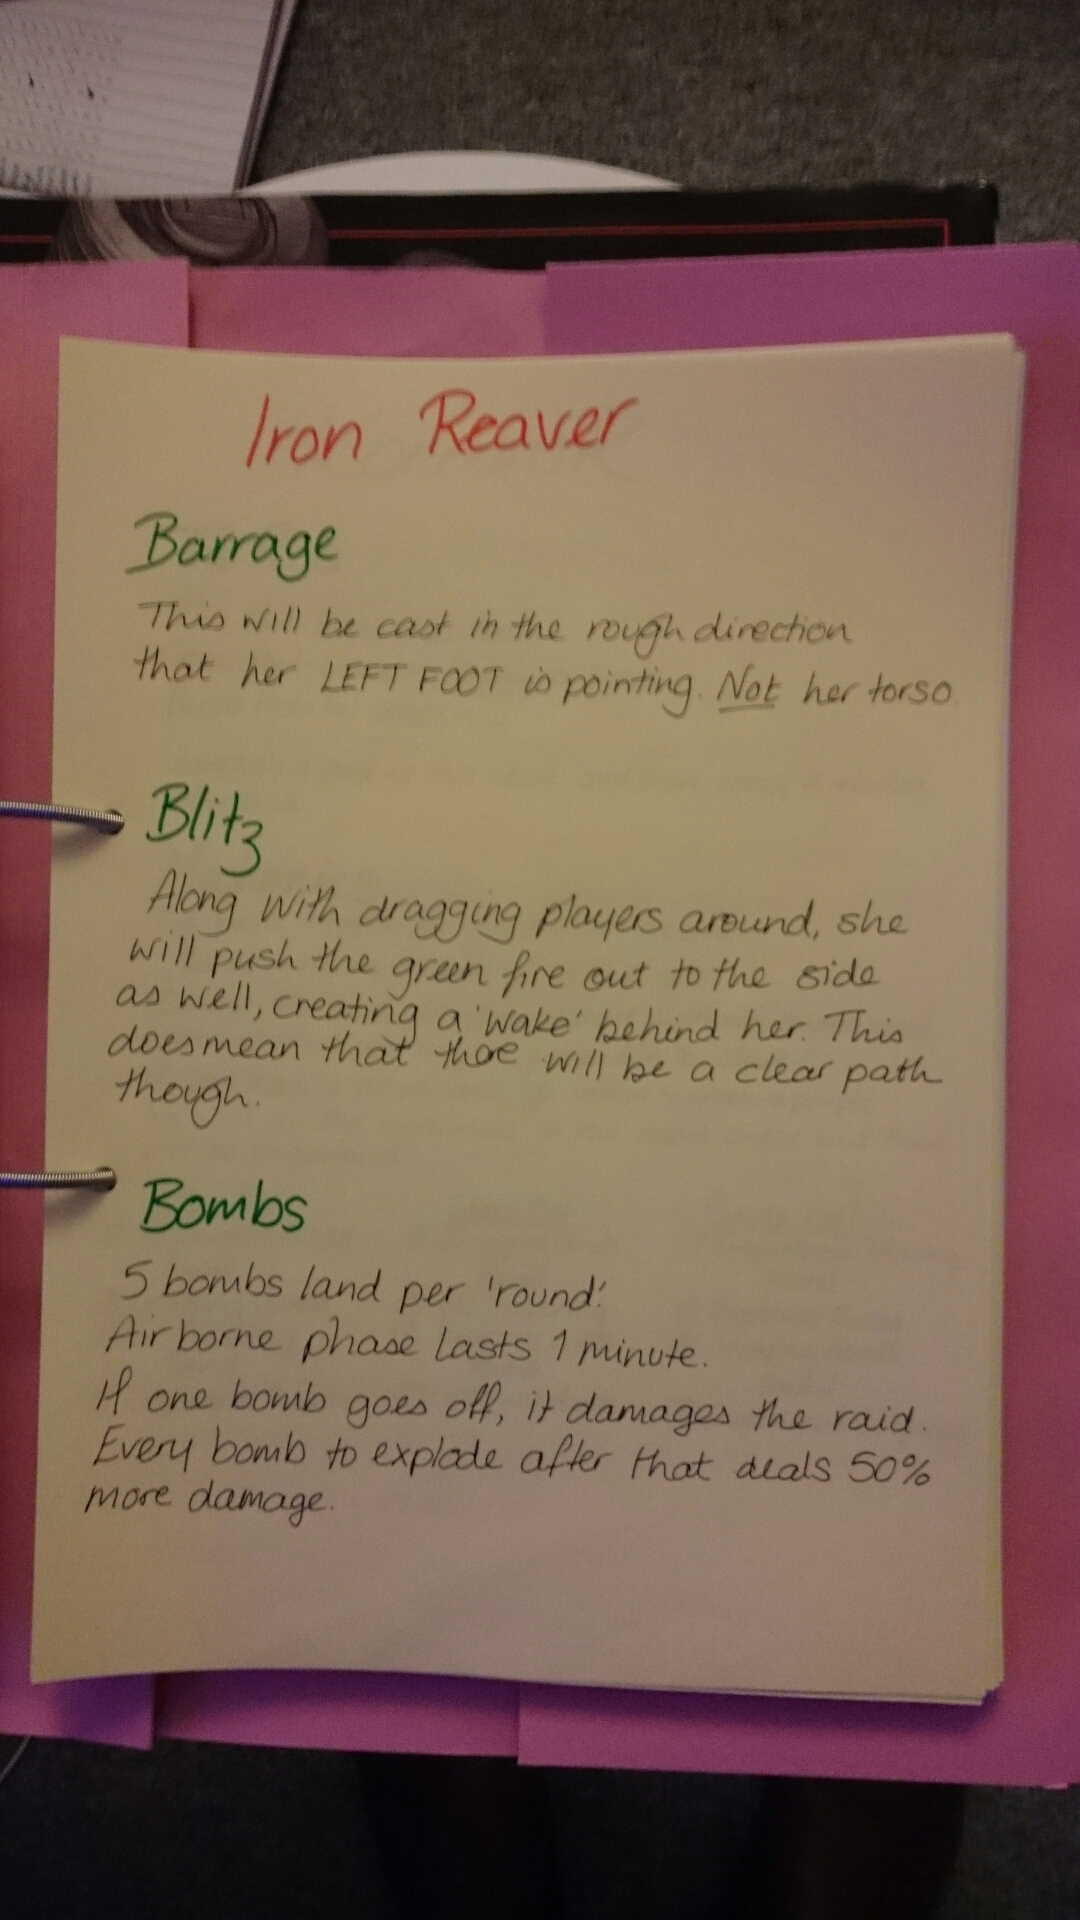 Iron Reaver
Barrage
This will be cast in the rough direction
that her LEFT FOOT is pointing. Not her torso.
Blitz
Along with dragging players around, she
will push the green fire out to the side
as well, creating a 'wake' behind her. This
does mean that there will be a clear path
though.
Bombs
5 bombs land per 'round'.
Airborne phase lasts 1 minute.
If one bomb goes off, it damages the raid.
Every bomb to explode after that deals 50%
more damage.